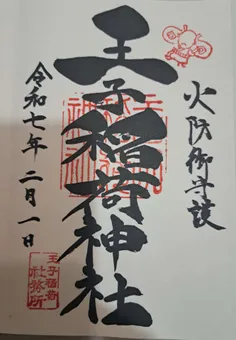 火防御守護
王子稲荷神社
令和七年 二月一日
王子稲荷
社務所